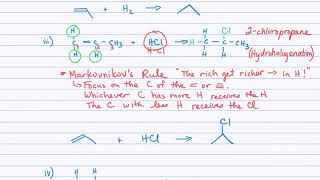 + H₂ →
iii) H H H
C = C - C - CH₃ + HCl → H - C - C - CH₃
Cl
H H
2-chloropropane
(Hydrohalogenation)
* Markovnikov's Rule "The rich get richer → in H!"
↳ Focus on the C of the = or ≡.
Whichever C has more H receives the H.
The C with less H receives the Cl.
+ HCl →
Cl
iv) H H